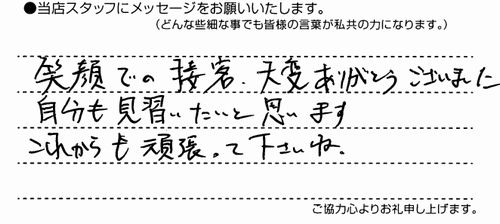 ●当店スタッフにメッセージをお願いいたします。
(どんな些細な事でも皆様の言葉が私共の力になります。)
笑顔での接客、大変ありがとうございました
自分も見習いたいと思います
これからも頑張って下さいね。
ご協力心よりお礼申し上げます。